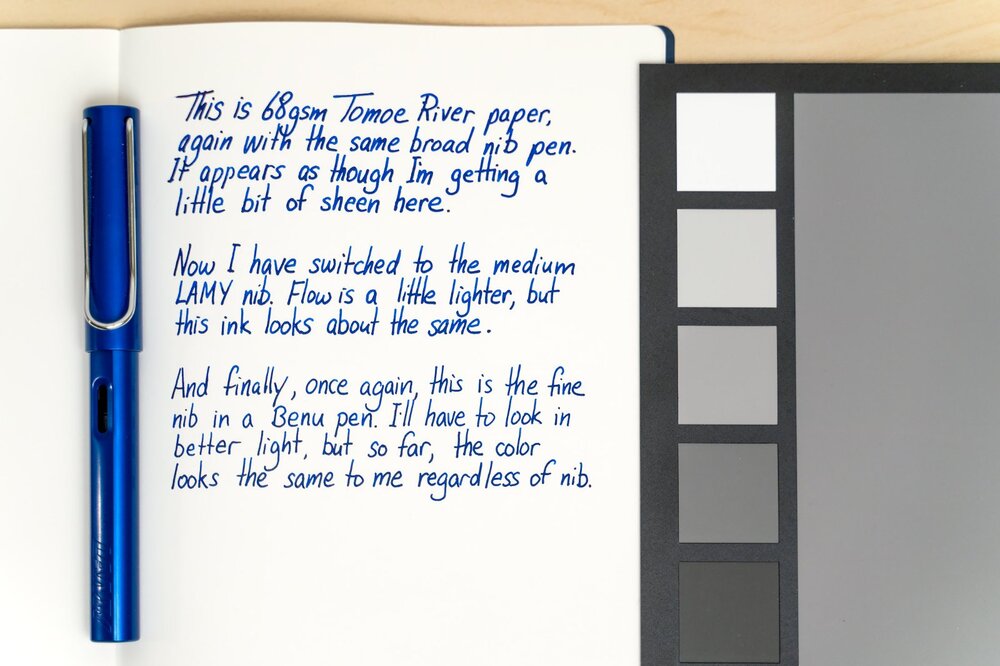 This is 68gsm Tomoe River paper,
again with the same broad nib pen.
It appears as though I'm getting a
little bit of sheen here.
Now I have switched to the medium
LAMY nib. Flow is a little lighter, but
this ink looks about the same.
And finally, once again, this is the fine
nib in a Benu pen. I'll have to look in
better light, but so far, the color
looks the same to me regardless of nib.